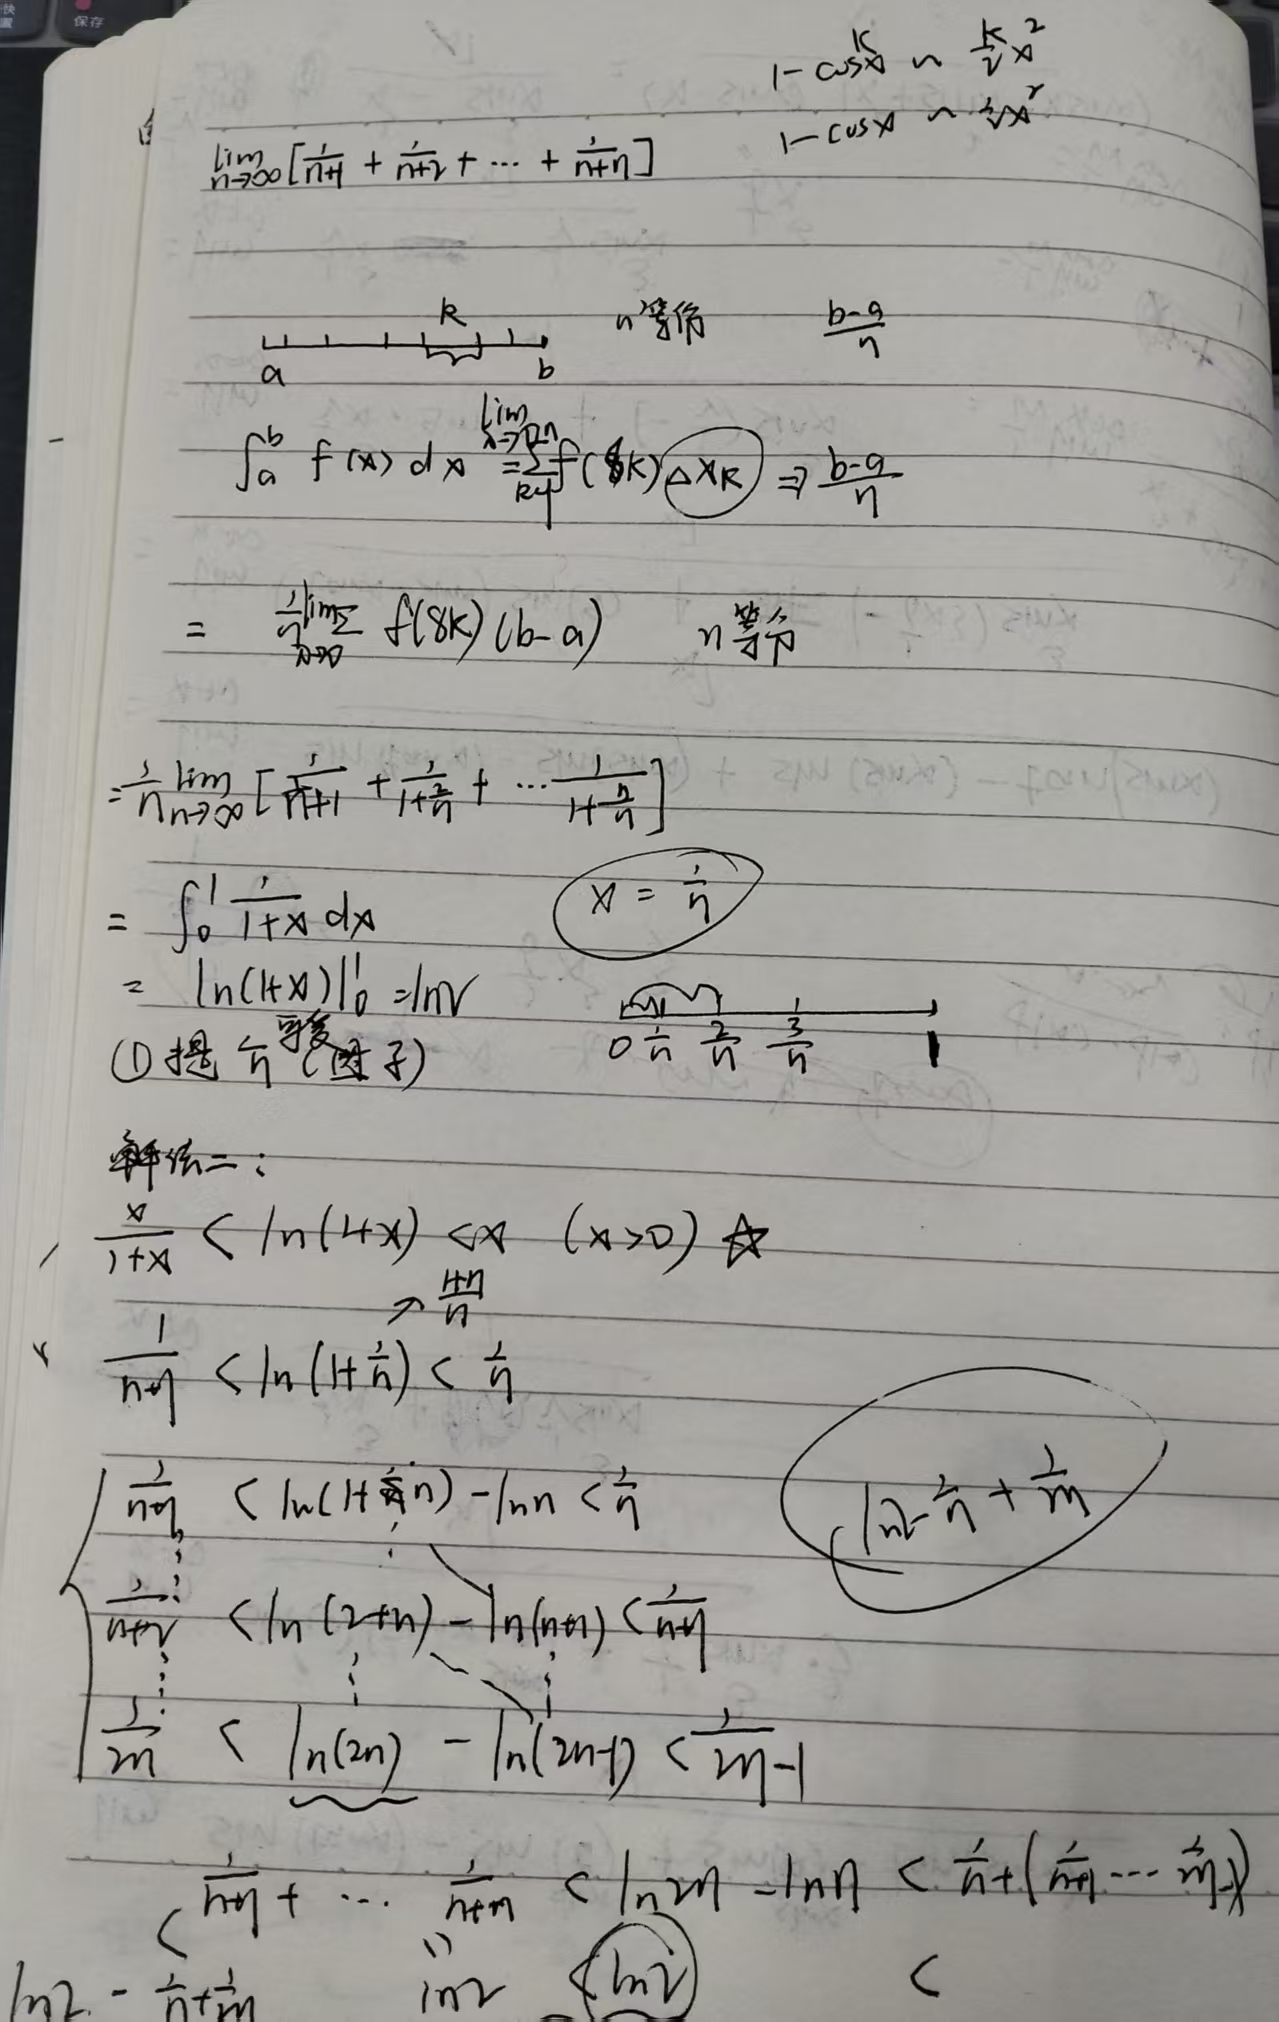 保存
1-cos^k x ~ k/2 x²
1-cosx ~ 1/2 x²
lim n→∞ [1/(n+1) + 1/(n+2) + ··· + 1/(n+n)]
k
a b
n等份 (b-a)/n
∫_a^b f(x)dx = lim Σ f(ξk) Δxk ⇒ (b-a)/n
= 1/n lim Σ f(ξk)(b-a) n等分
= 1/n lim n→∞ [1/(1/n+1) + 1/(1+2/n) + ··· 1/(1+n/n)]
= ∫_0^1 1/(1+x) dx x = 1/n
= ln(1+x)|_0^1 = ln2
0 1/n 2/n 3/n 1
① 提 1/n (因子)
解法二:
x/(1+x) < ln(1+x) < x (x>0) ☆
↗ (1+n)/n
1/(n+1) < ln(1+1/n) < 1/n
1/(n+1) < ln(1+n) - lnn < 1/n
ln2 - 1/n + 1/2n
1/(n+2) < ln(2+n) - ln(n+1) < 1/(n+1)
1/2n < ln(2n) - ln(2n-1) < 1/(2n-1)
< 1/(n+1) + ··· 1/(n+n) < ln2n - lnn < 1/n + (1/(n+1) ··· 1/(2n-1))
ln2 - 1/n + 1/2n ln2 < ln2 <